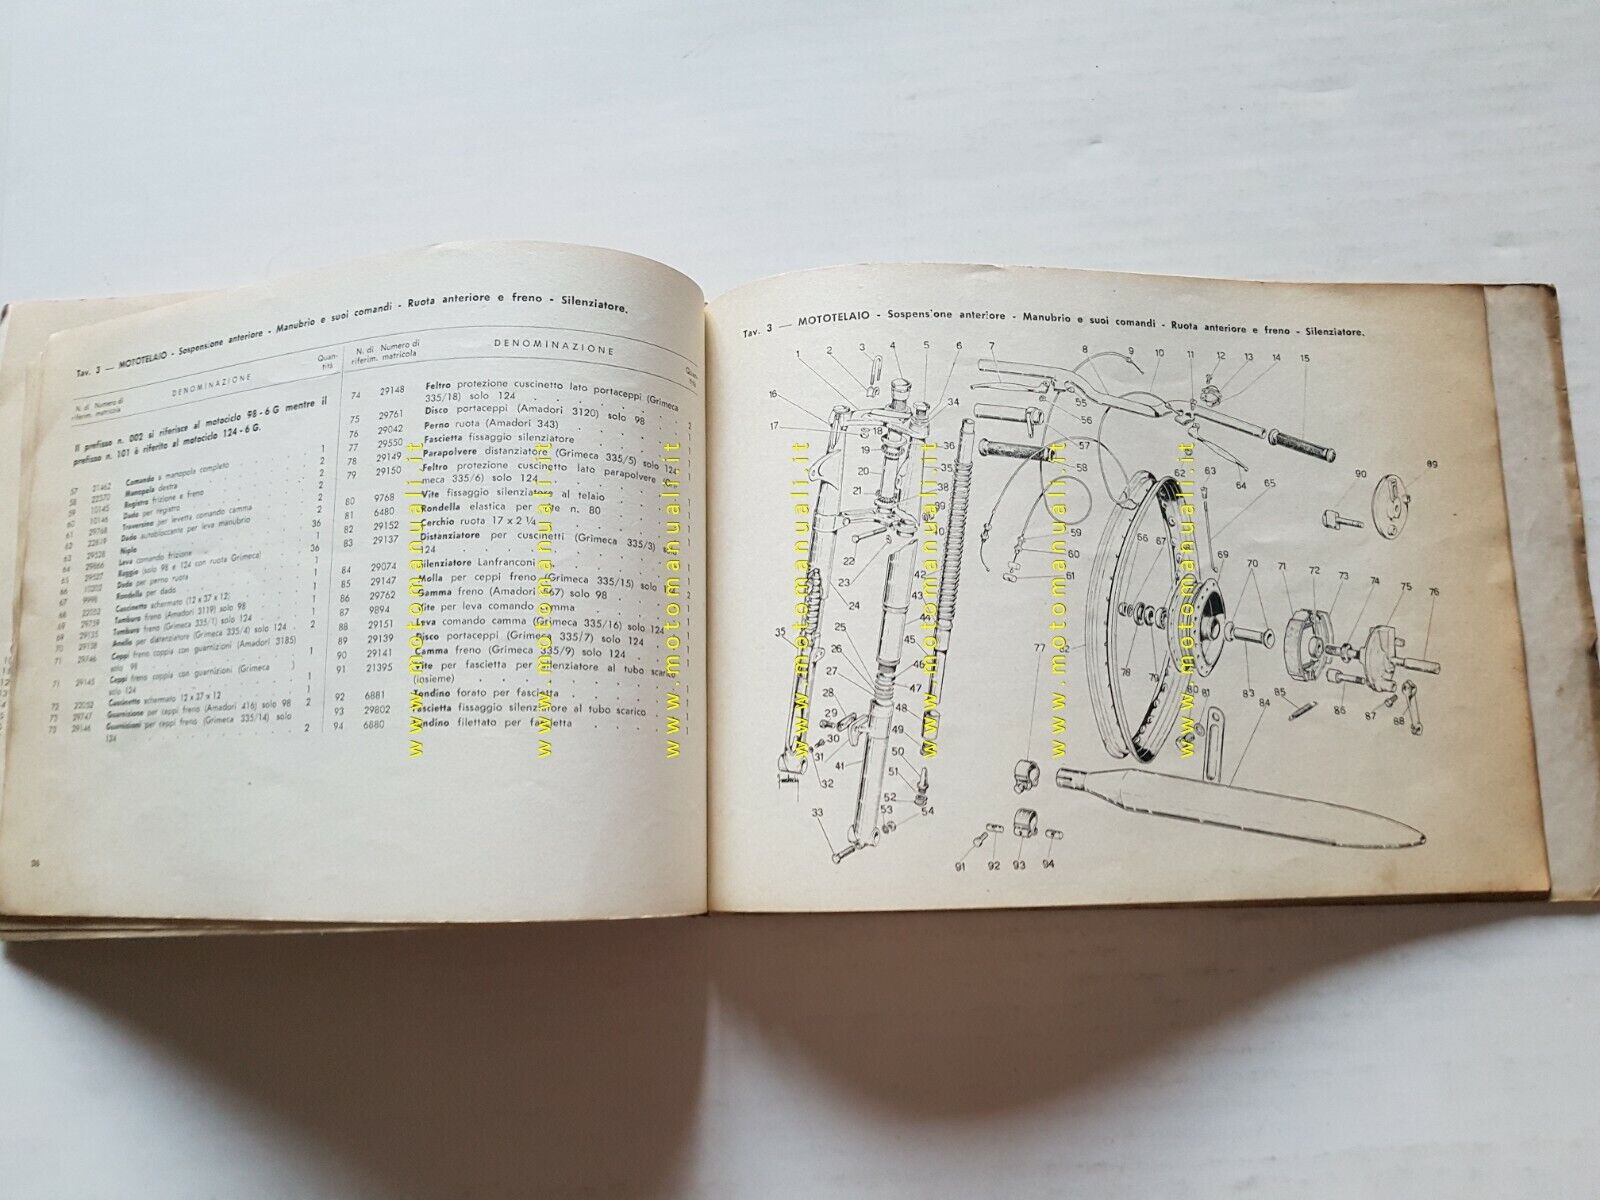 Tav. 3 — MOTOTELAIO - Sospensione anteriore - Manubrio e suoi comandi - Ruota anteriore e freno - Silenziatore.
N. di riferim. Numero di matricola DENOMINAZIONE Quantità
Il prefisso n. 002 si riferisce al motociclo 98-6 G mentre il
prefisso n. 101 è riferito al motociclo 124-6 G.
57 21462 Comando a manopola completo 1
58 22570 Manopola destra
59 10145 Registro frizione e freno
60 10146 Dado per registro
61 29768 Traversino per levetta comando camma
62 22819 Dado autobloccante per leva manubrio
63 29528 Niplo 36
64 29866 Leva comando frizione 1
65 29527 Raggio (solo 98 e 124 con ruota Grimeca) 36
66 10202 Dado per perno ruota
67 9998 Rondella per dado
68 22052 Cuscinetto schermato (12 x 37 x 12)
69 29759 Tamburo freno (Amadori 3119) solo 98
69 29135 Tamburo freno (Grimeca 335/1) solo 124
70 29138 Anello per distanziatore (Grimeca 335/4) solo 124
71 29746 Ceppi freno coppia con guarnizioni (Amadori 3185)
solo 98
71 29145 Ceppi freno coppia con guarnizioni (Grimeca
solo 124
72 22052 Cuscinetto schermato 12 x 37 x 12 1
73 29747 Guarnizione per ceppi freno (Amadori 416) solo 98 2
73 29146 Guarnizioni per ceppi freno (Grimeca 335/14) solo
124 2
26
N. di riferim. Numero di matricola DENOMINAZIONE Quantità
74 29148 Feltro protezione cuscinetto lato portaceppi (Grimeca
335/18) solo 124
75 29761 Disco portaceppi (Amadori 3120) solo 98
76 29042 Perno ruota (Amadori 343)
77 29550 Fascietta fissaggio silenziatore
78 29149 Parapolvere distanziatore (Grimeca 335/5) solo 124
79 29150 Feltro protezione cuscinetto lato parapolvere
meca 335/6) solo 124
80 9768 Vite fissaggio silenziatore al telaio
81 6480 Rondella elastica per vite n. 80
82 29152 Cerchio ruota 17 x 2 ¼
83 29137 Distanziatore per cuscinetti (Grimeca 335/3)
124
84 29074 Silenziatore Lanfranconi
85 29147 Molla per ceppi freno (Grimeca 335/15) solo
86 29762 Camma freno (Amadori 667) solo 98
87 9894 Vite per leva comando camma
88 29151 Leva comando camma (Grimeca 335/16) solo 124
89 29139 Disco portaceppi (Grimeca 335/7) solo 124
90 29141 Camma freno (Grimeca 335/9) solo 124
91 21395 Vite per fascietta per silenziatore al tubo scarico
(iosieme)
92 6881 Tondino forato per fascietta
93 29802 Fascietta fissaggio silenziatore al tubo scarico
94 6880 Tondino filettato per fascietta
www.motomanuali.it
www.motomanuali.it
www.motomanuali.it
Tav. 3 — MOTOTELAIO - Sospensione anteriore - Manubrio e suoi comandi - Ruota anteriore e freno - Silenziatore.
1 2 3 4 5 6 7 8 9 10 11 12 13 14 15
16 17 18 34 55 56 57 58
19 20 21 22 23 24 35 36 35 38 39 40
59 60 61 62 63 64 65 90 89
25 26 27 28 29 30 31 32 33 41 42 43 44 45 46 47 48 49 50 51 52 53 54
77 82 78 79 80 81 83 84 85 86 87 88
56 67 69 70 71 72 73 74 75 76
91 92 93 94
www.motomanuali.it
www.motomanuali.it
www.motomanuali.it
www.motomanuali.it